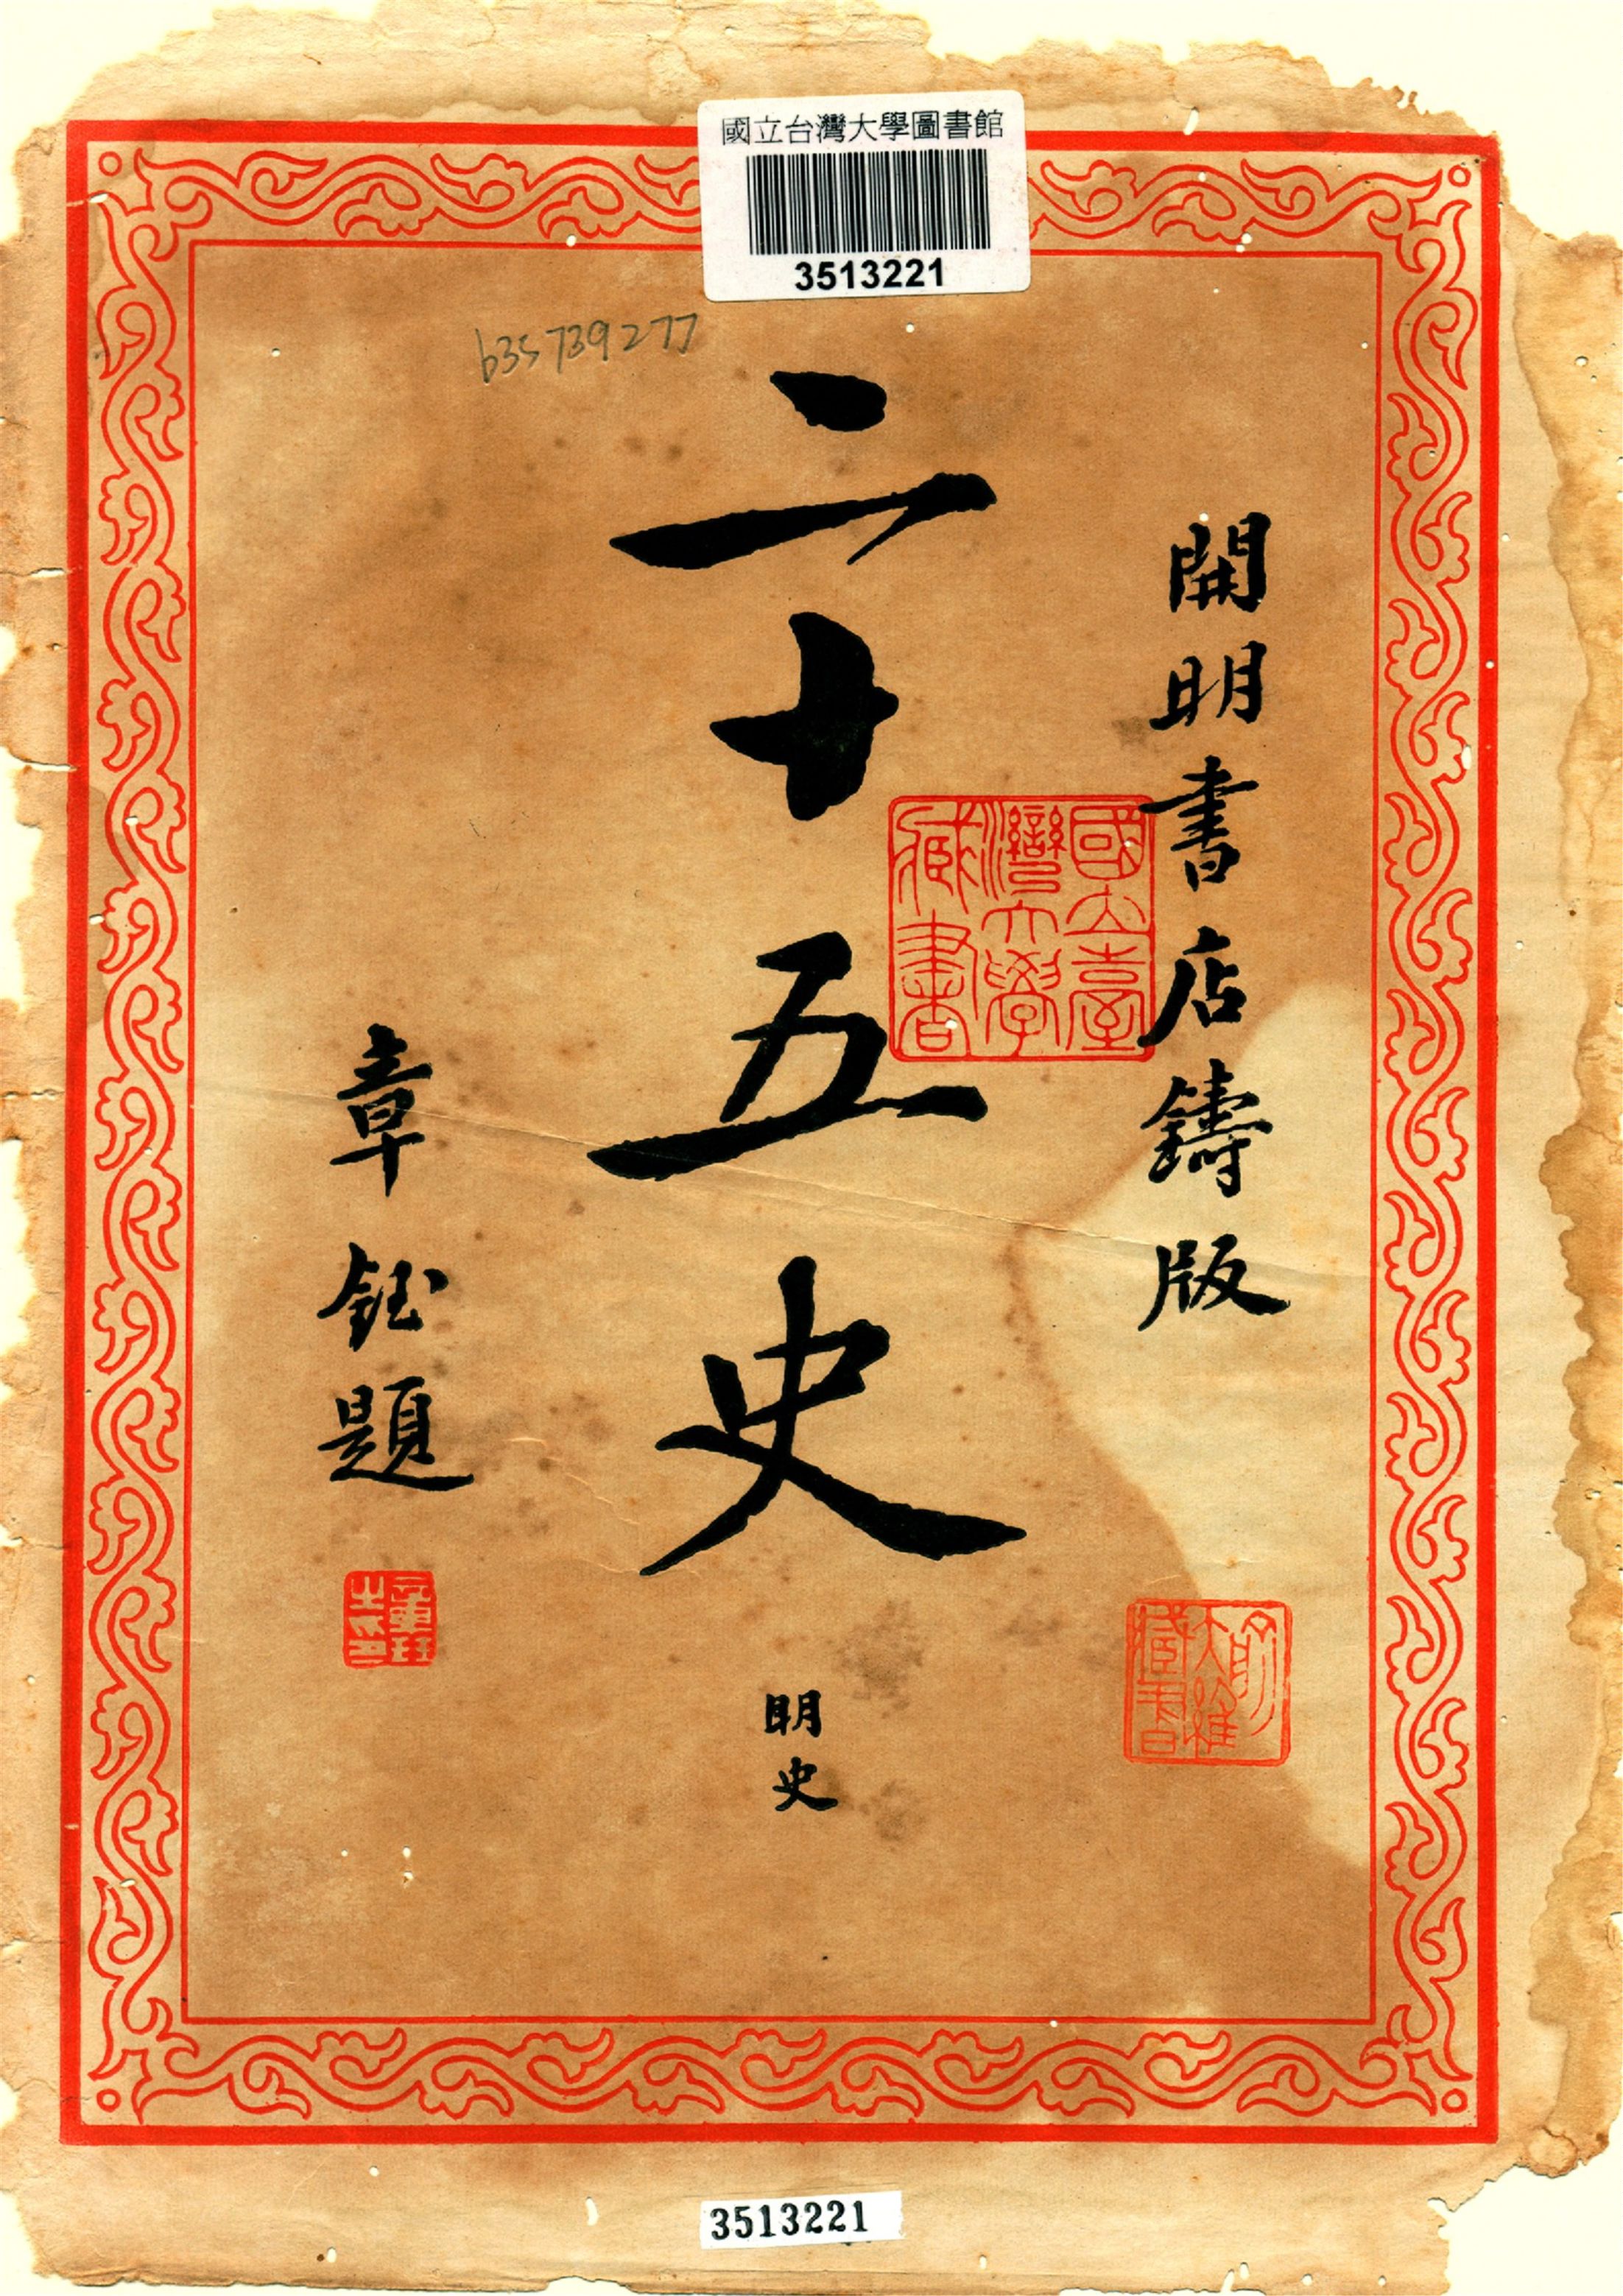 國立台灣大學圖書館
3513221
b35739277
開明書店鑄版
二十五史
明史
章鈺題
國立臺
灣大學
藏書
3513221